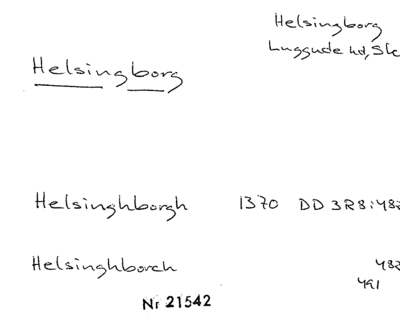 Helsingborg
Luggude hd, Sk
Helsingborg
Helsinghborgh 1370 DD 3R8:482
Helsinghborch 482
491
Nr 21542